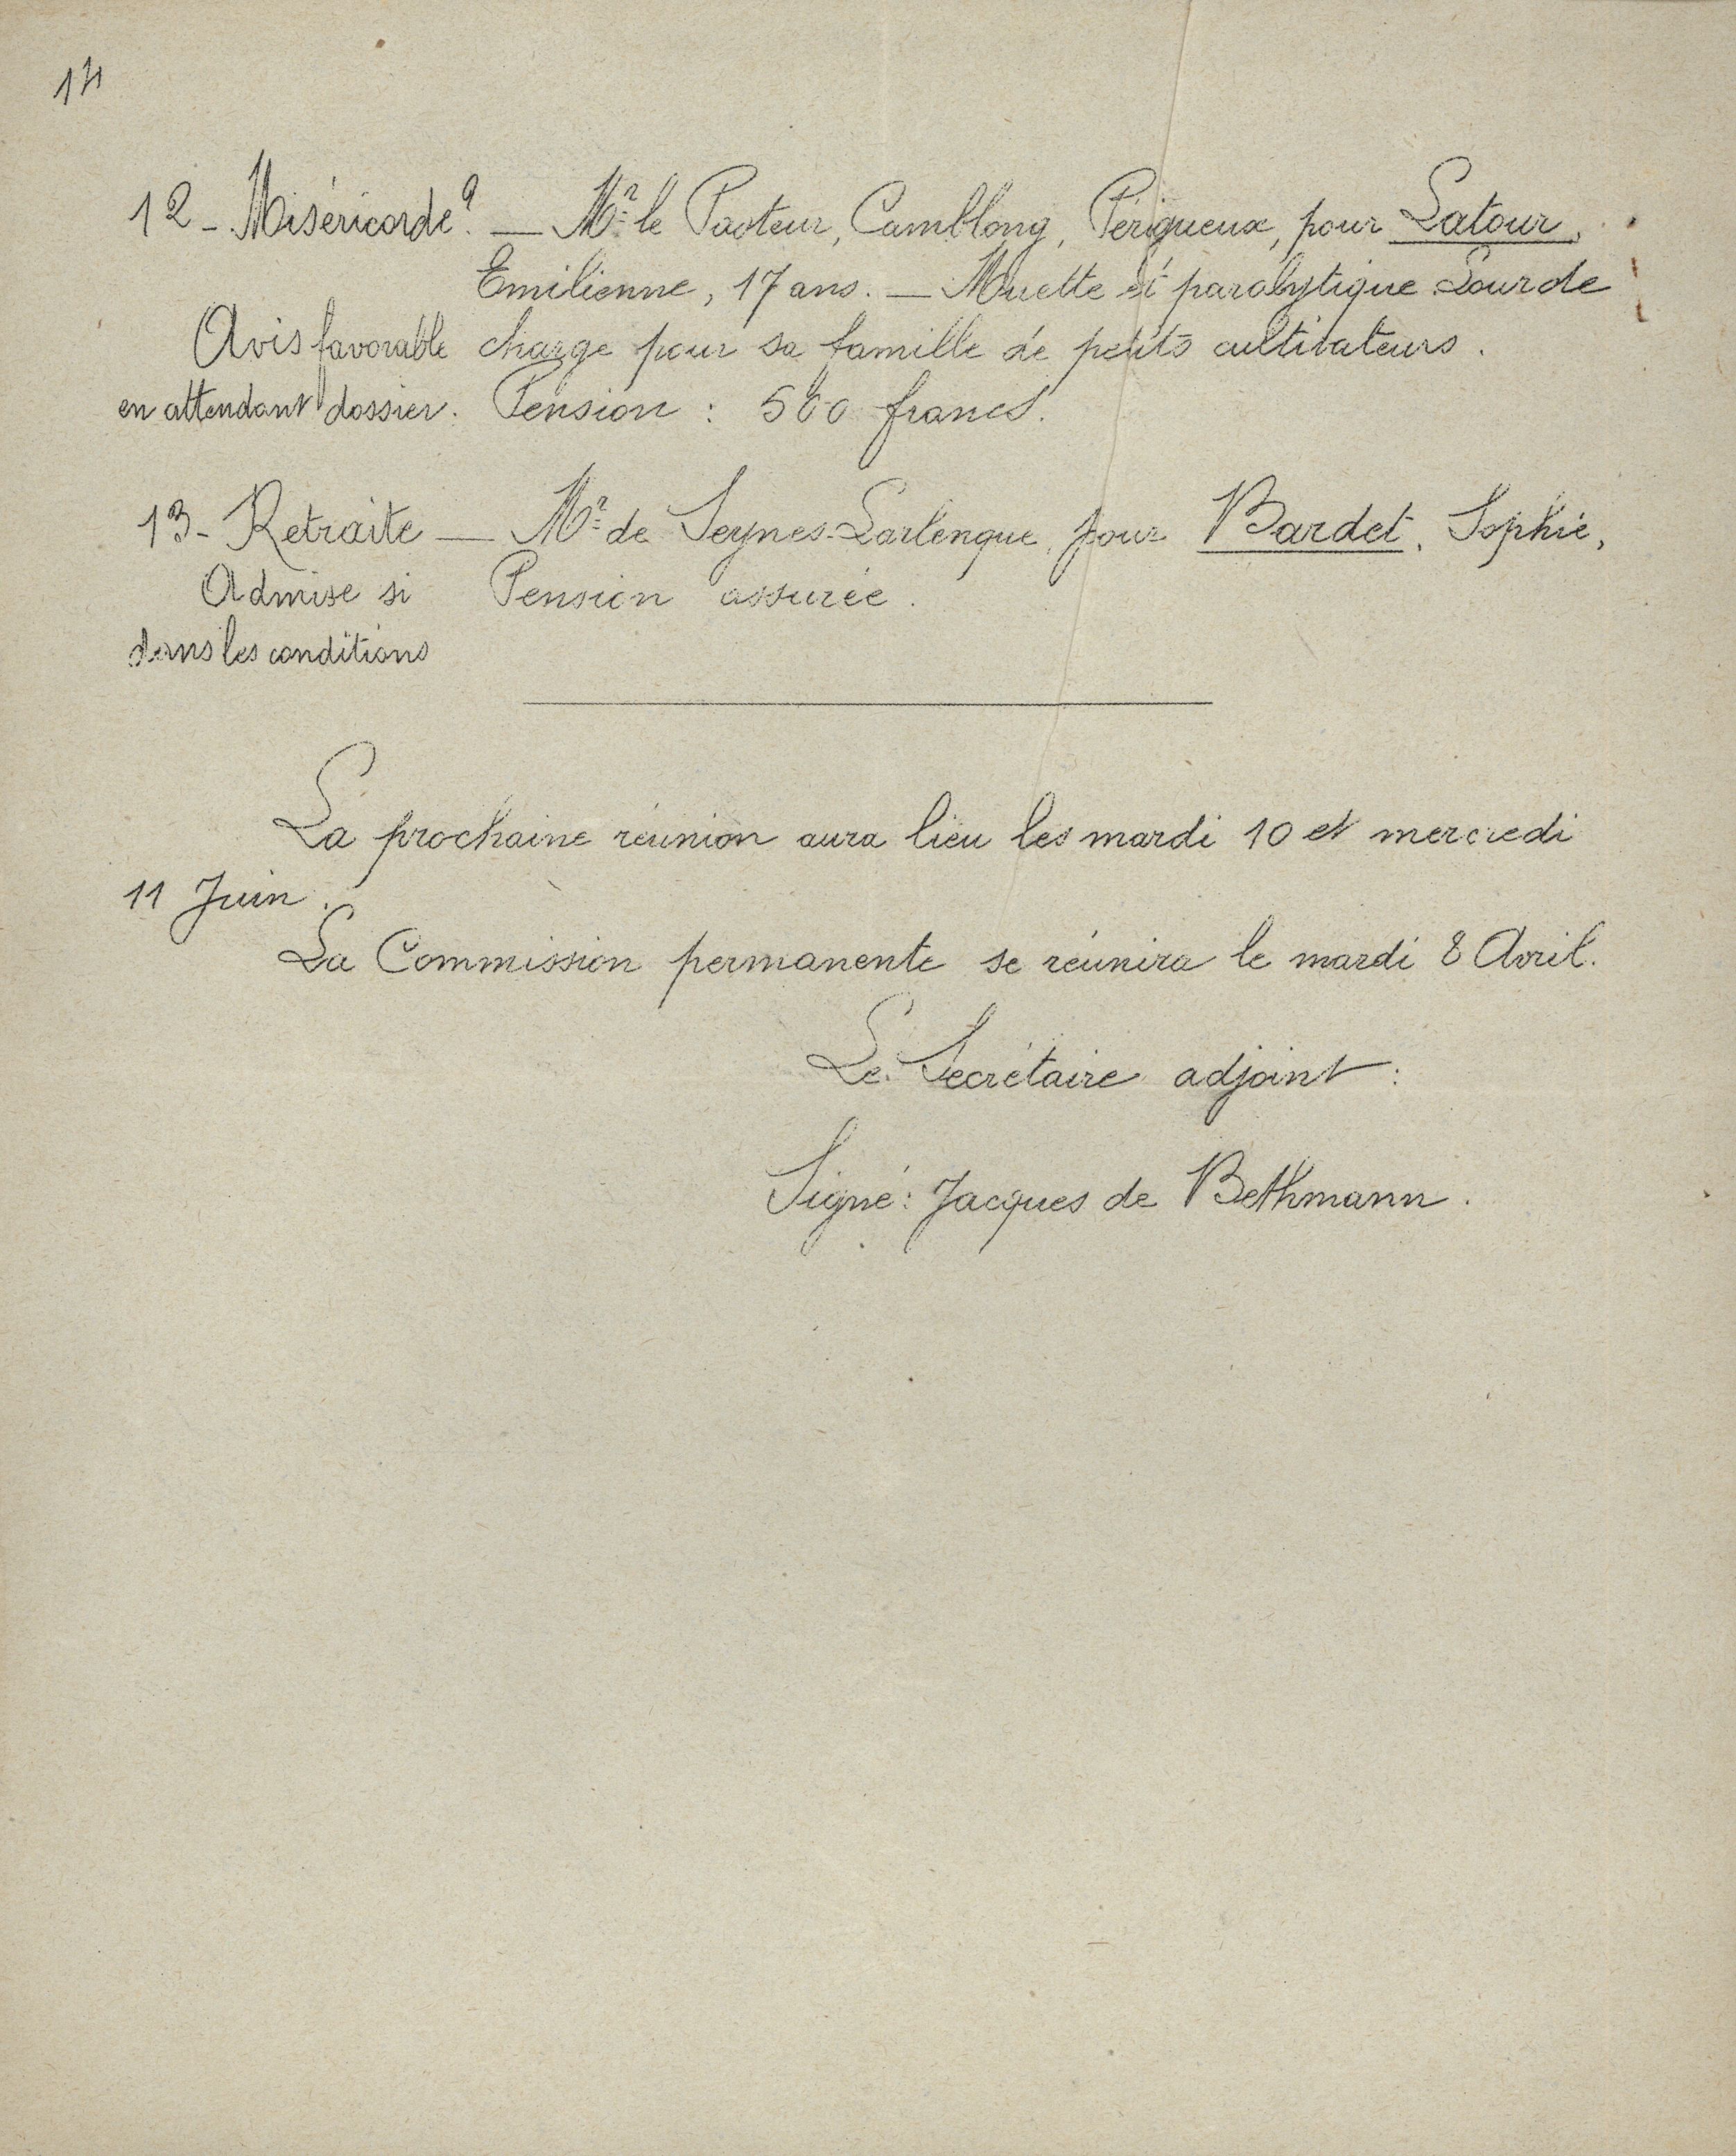 14
12 - Miséricorde? — Mr le Pasteur, Camblong, Périgueux, pour Latour,
Emilienne, 17 ans. — Muette et paralytique. Lourde
Avis favorable charge pour sa famille de petits cultivateurs.
en attendant dossier. Pension : 500 francs.
13 - Retraite — Mr de Seynes-Larlenque, pour Bardet, Sophie,
Admise si Pension assurée.
dans les conditions
La prochaine réunion aura lieu les mardi 10 et mercredi
11 Juin.
La Commission permanente se réunira le mardi 8 Avril.
Le Secrétaire adjoint :
Signé : Jacques de Bethmann.